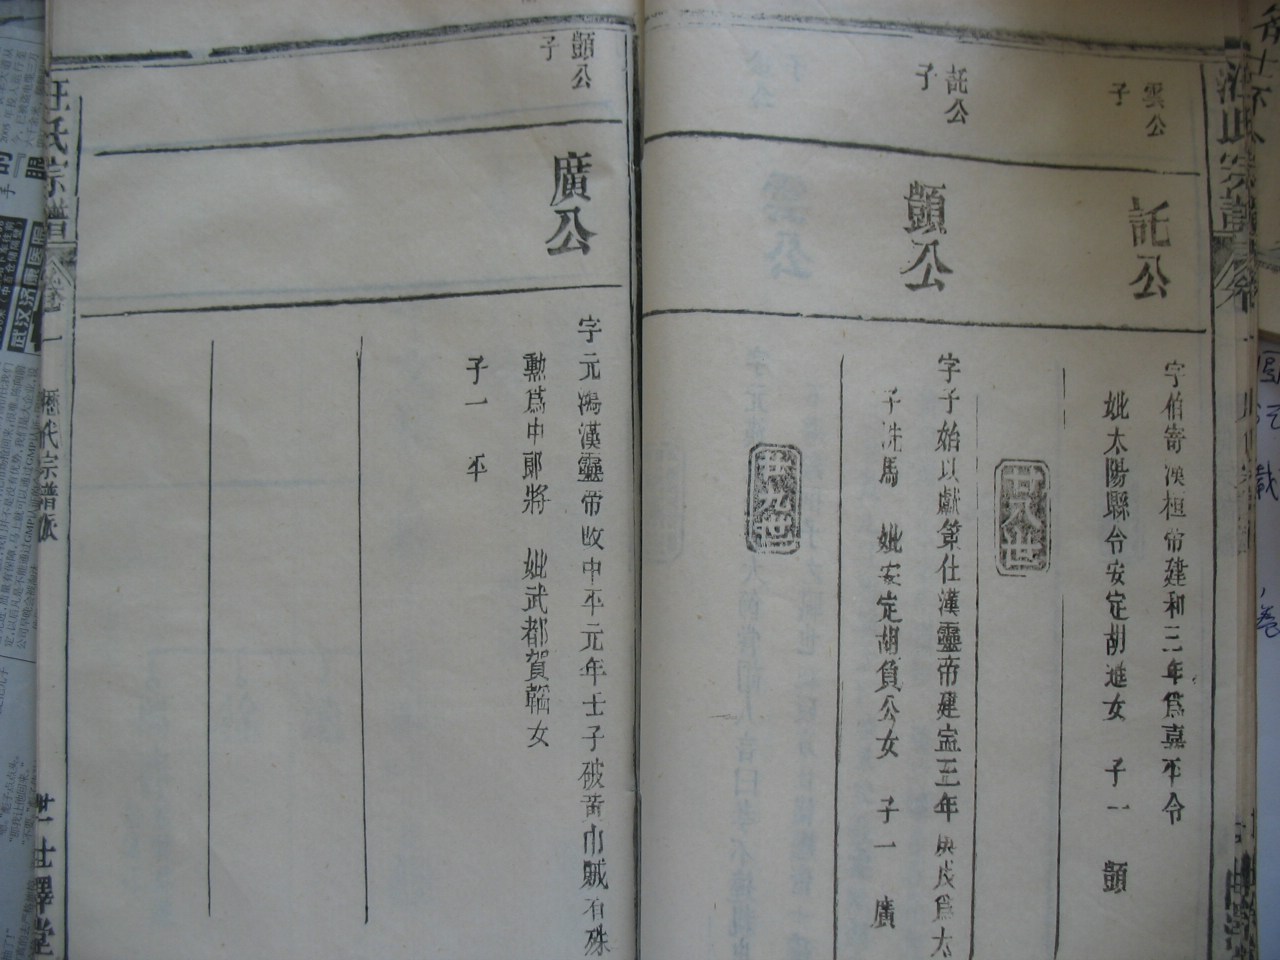 雲公
子
託公
字伯寄漢桓帝建和三年爲嘉平令
妣太陽縣令安定胡進女 子一 顗
廿八世
託公
子
顗公
字子始以獻策仕漢靈帝建寍三年庚戌爲太
子洗馬 妣安定胡負公女 子一 廣
廿九世
顗公
子
廣公
字元鴻漢靈帝改中平元年士子破黃巾賊有殊
勲爲中郎將 妣武都賀韜女
子一 平
汪氏宗譜
卷一
歷代宗譜派
世澤堂